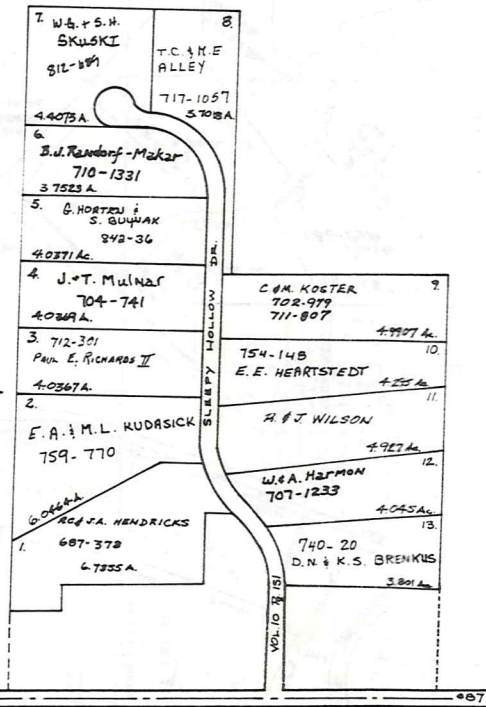 7. W.G. & S.H.
SKUSKI
812-689
4.4073 A.
8.
T.C. & M.E
ALLEY
717-1057
3.7018 A.
6.
B.J. Randorf-Makar
710-1331
3.7523 A.
5. G. HORTEN &
S. BUJNAK
842-36
4.0371 Ac.
4. J. & T. Mulnar
704-741
4.0369 A.
3. 712-301
PAUL E. RICHARDS II
4.0367 A.
2.
E.A. & M.L. KUDASICK
759-770
6.0464 A.
1.
RC & J.A. HENDRICKS
687-378
6.7355 A.
SLEEPY HOLLOW DR.
C & M. KOSTER
702-979
711-807
9.
4.9907 Ac.
10.
754-148
E.E. HEARTSTEDT
4.255 Ac
11.
R. & J. WILSON
4.927 Ac.
12.
W. & A. HARMON
707-1233
4.045 Ac.
13.
740-20
D.N. & K.S. BRENKUS
3.801 Ac
VOL. 10 Pg 151
87